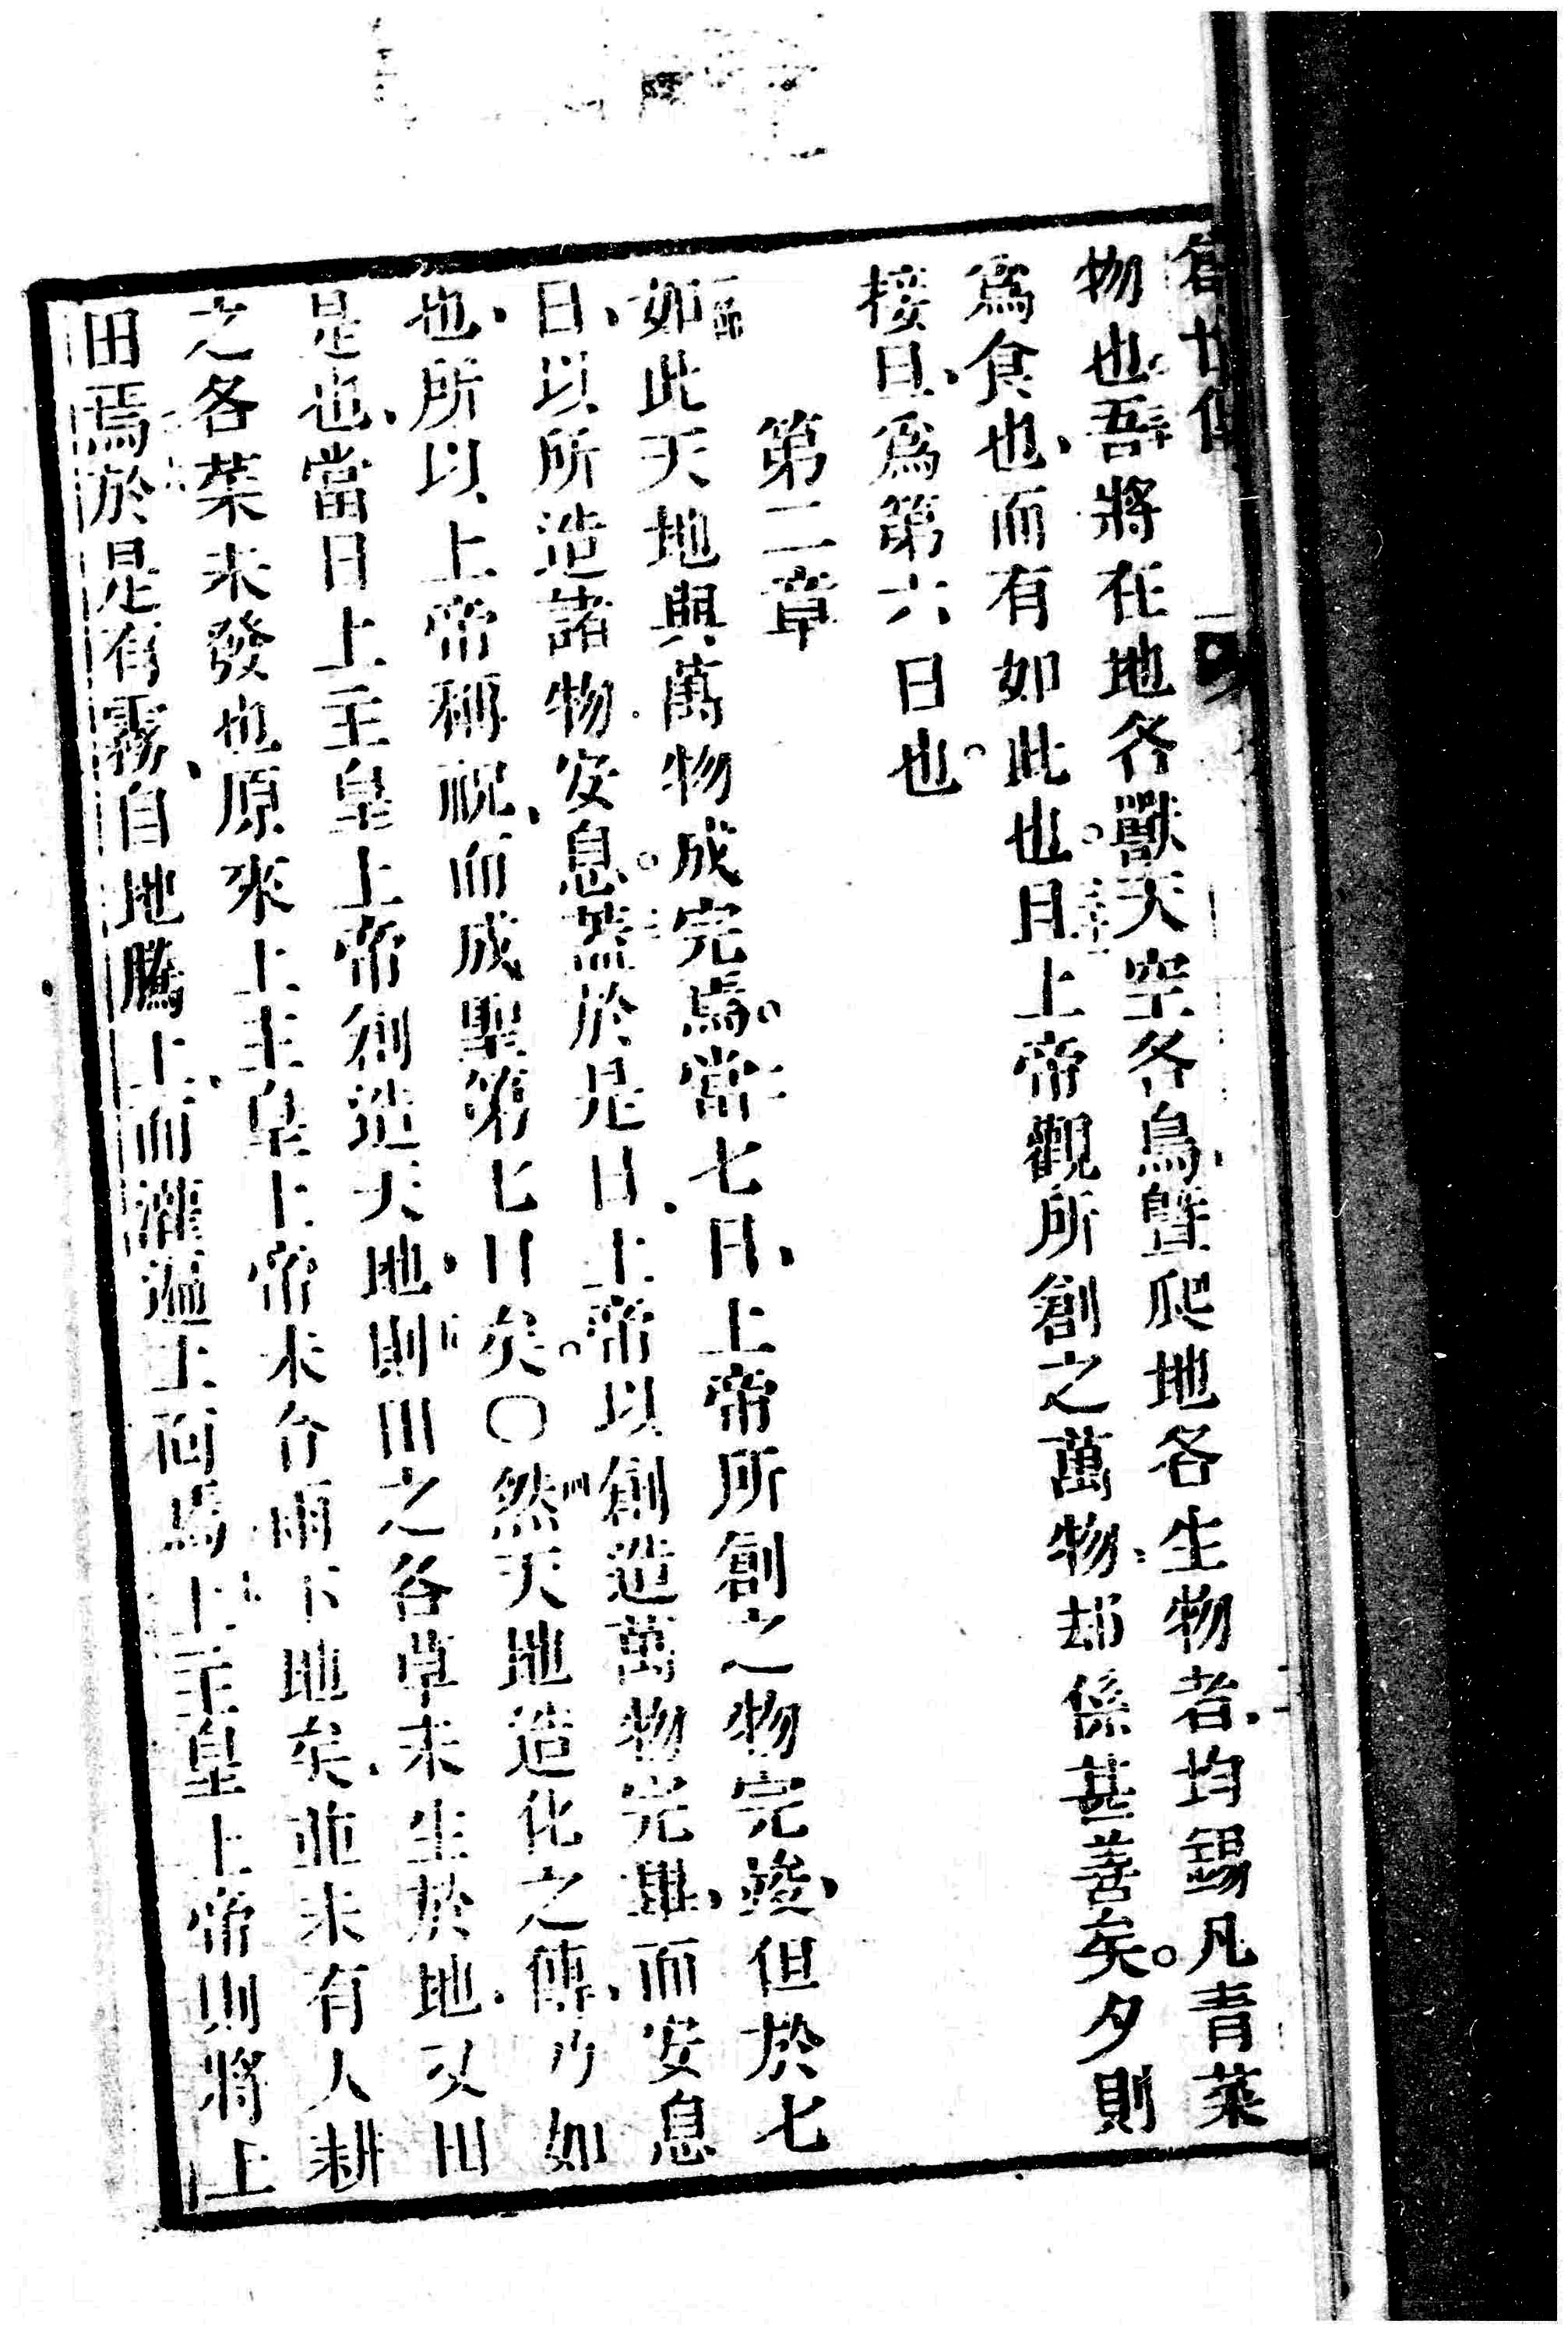 創世傳
物也。三十吾將在地各獸天空各鳥、曁爬地各生物者、均錫凡青菜
爲食也、而有如此也。三十一且上帝觀所創之萬物、却係甚善矣。夕則
接日、爲第六日也。
第二章
一節如此天地與萬物成完焉。二當七日、上帝所創之物完竣、但於七
日、以所造諸物安息。三蓋於是日、上帝以創造萬物完畢、而安息
也、所以上帝稱祝、而成聖第七日矣。〇四然天地造化之傳、乃如
是也、當日上主皇上帝創造天地、五則田之各草未生於地、又田
之各菜未發也、原來上主皇上帝未令雨下地矣、並未有人耕
田焉、六於是有霧、自地騰上、而灌遍土面焉、七上主皇上帝則將土